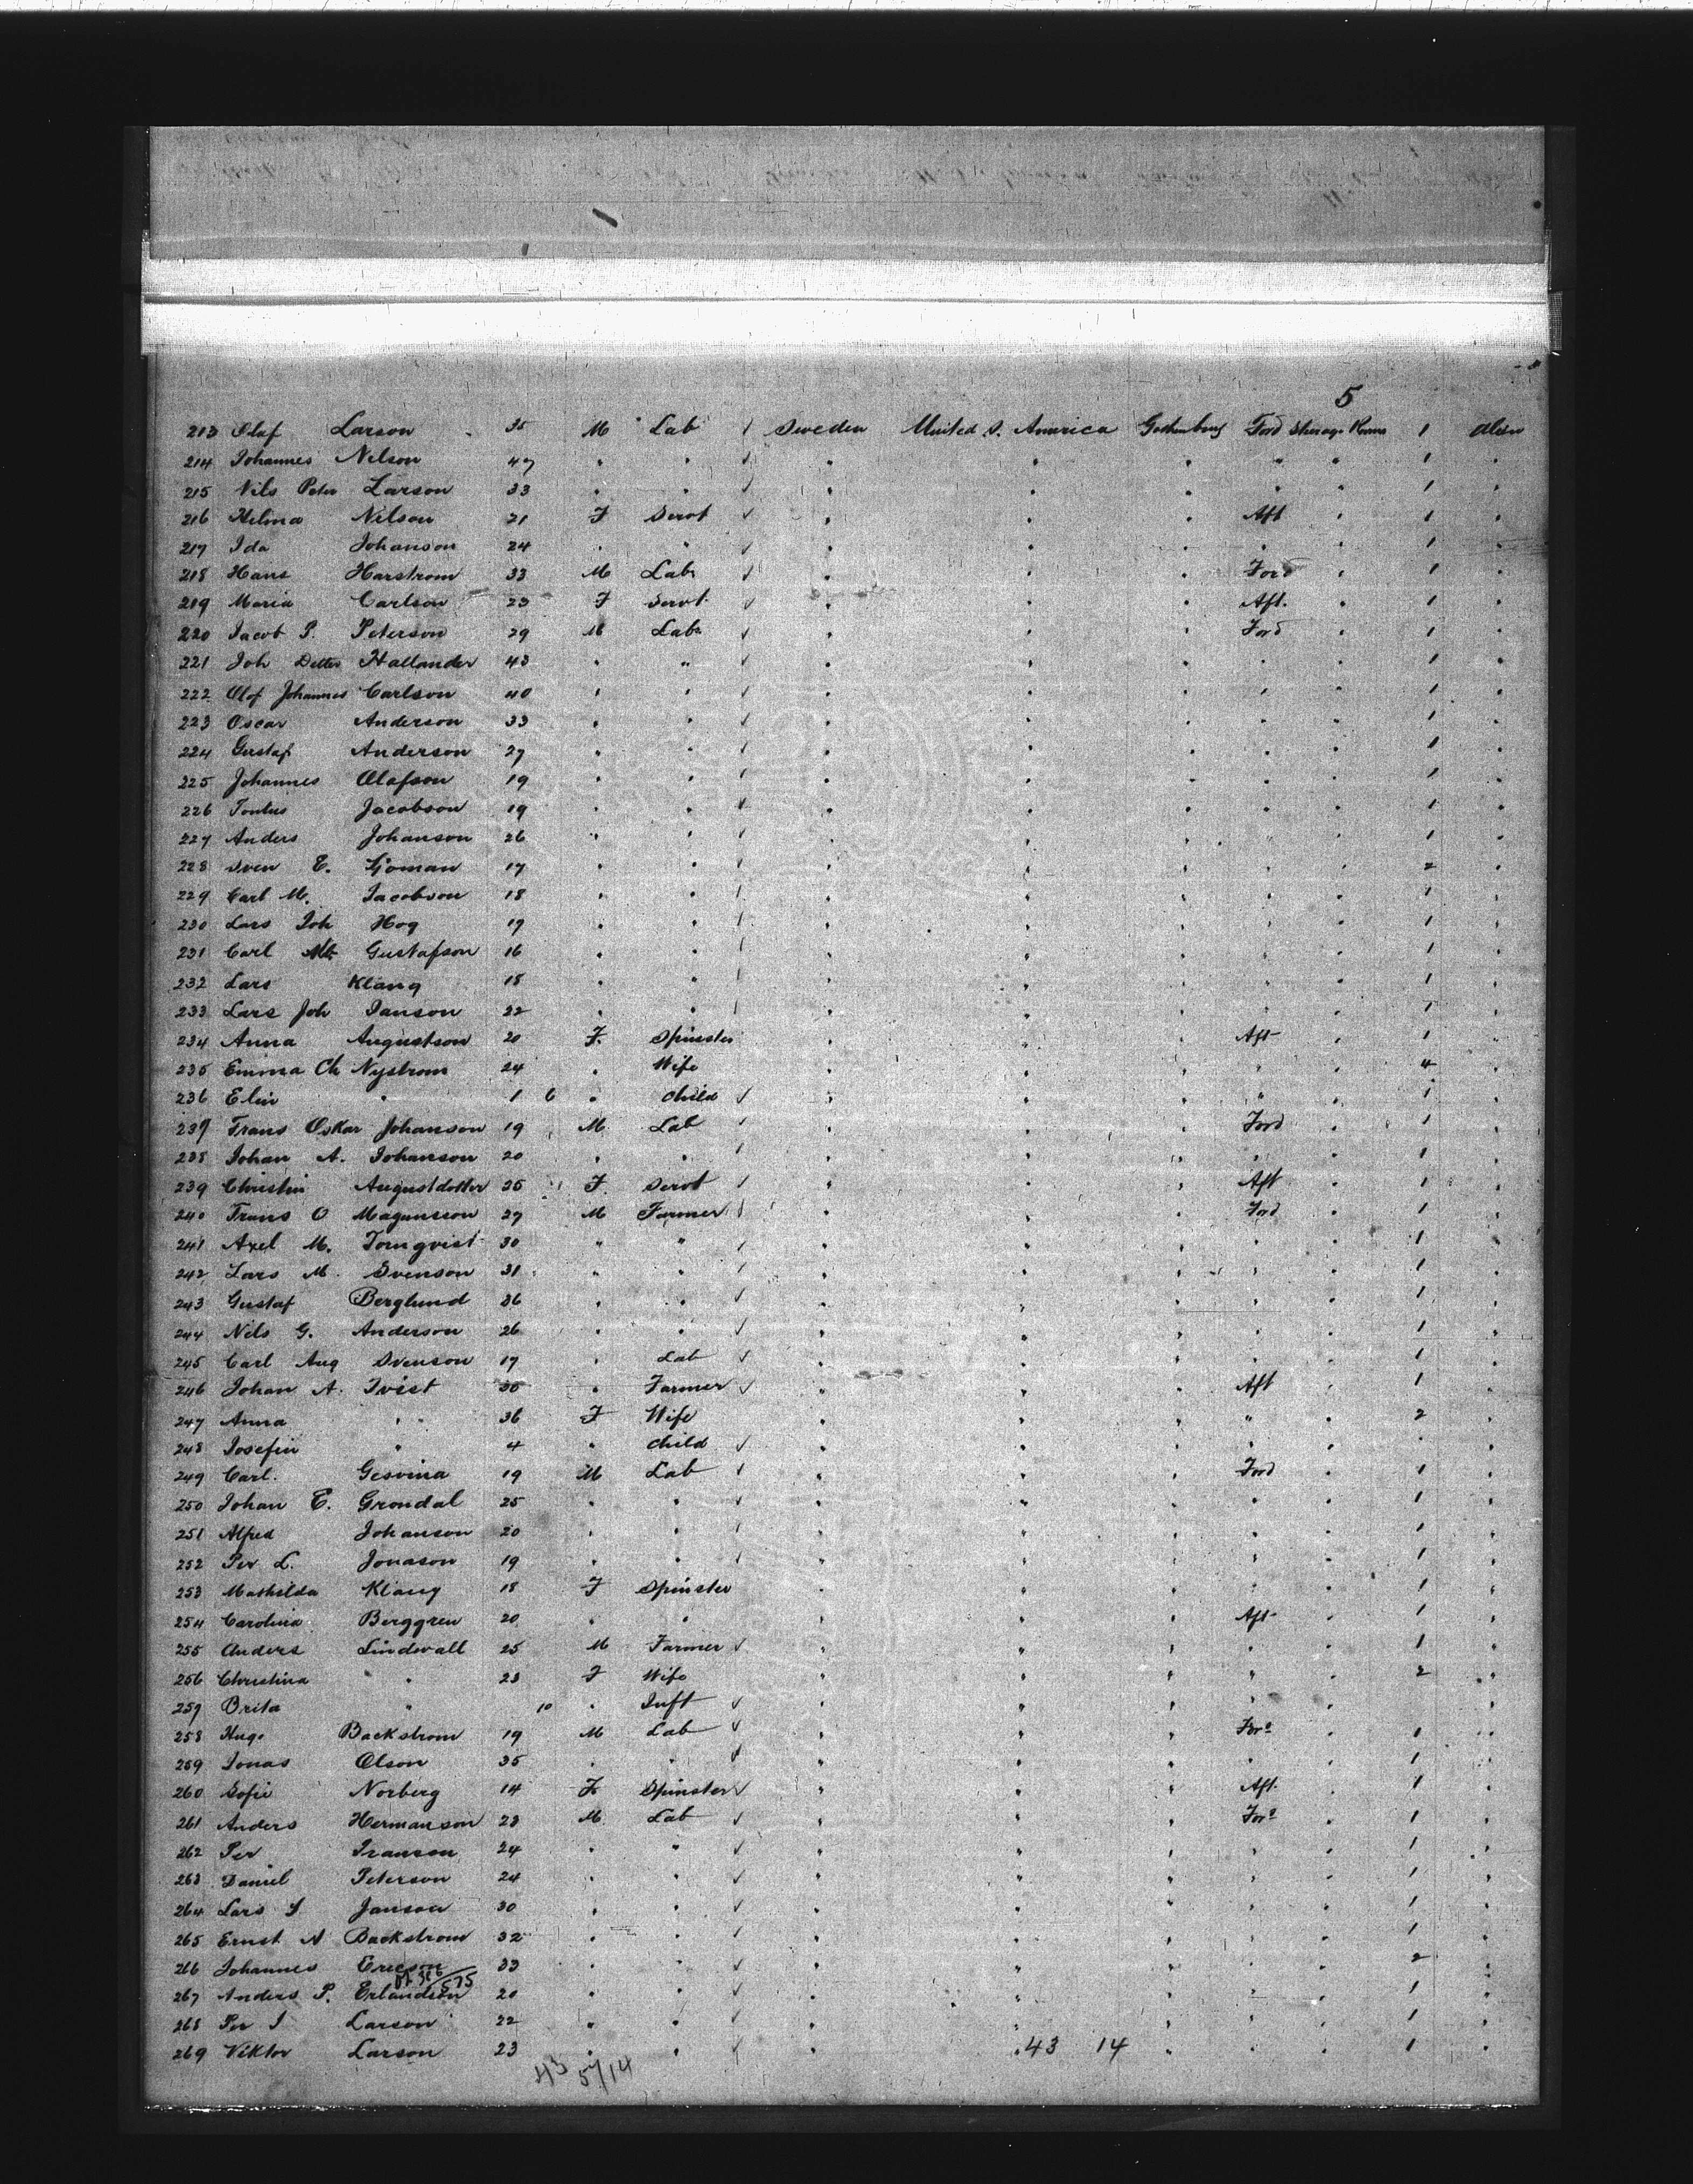 5
213 Olaf Larson 35 M Lab / Sweden United S. America Gothenburg Ford Steerage Rooms 1 Alien
214 Johannes Nelson 47 " " ✓ " " " " " 1 "
215 Nils Peter Larson 33 " " ✓ " " " " " 1 "
216 Helma Nelson 21 F Servt ✓ " " " Aft " 1 "
217 Ida Johanson 24 " " ✓ " " " " " 1 "
218 Hans Harstrom 33 M Labr ✓ " " " Ford " 1 "
219 Maria Carlson 23 F Servt ✓ " " " Aft. " 1 "
220 Jacob P. Peterson 29 M Labr ✓ " " " Ford " 1 "
221 Joh Hallander 43 " " ✓ " " " " " 1 "
222 Olof Johannes Carlson 40 " " ✓ " " " " " 1 "
223 Oscar Anderson 33 " " ✓ " " " " " 1 "
224 Gustaf Anderson 27 " " ✓ " " " " " 1 "
225 Johannes Olafson 19 " " ✓ " " " " " 1 "
226 Jacobson 19 " " ✓ " " " " " 1 "
227 Anders Johanson 26 " " ✓ " " " " " 1 "
228 Sven E. 17 " " ✓ " " " " " 2 "
229 Carl M. Jacobson 18 " " / " " " " " 1 "
230 Lars Joh Hog 17 " " / " " " " " 1 "
231 Carl Gustafson 16 " " / " " " " " 1 "
232 Lars Klang 18 " " / " " " " " 1 "
233 Lars Joh Janson 22 " " / " " " " " 1 "
234 Anna Augustson 20 F. Spinster " " " Aft " 1 "
235 Emma Ch Nystrom 24 " Wife " " " " " 4 "
236 Elin " 1 6 " Child ✓ " " " " " 1 "
237 Frans Oskar Johanson 19 M Lab ✓ " " " Ford " 1 "
238 Johan A. Johanson 20 " " / " " " " " 1 "
239 Christin Augustdotter 25 F. Servt / " " " Aft " 1 "
240 Frans O Magnusson 27 M Farmer / " " " Ford " 1 "
241 Axel M. Tornqvist 30 " " / " " " " " 1 "
242 Lars M. Svenson 31 " " / " " " " " 1 "
243 Gustaf Berglund 36 " " ✓ " " " " " 1 "
244 Nils G. Anderson 26 " " ✓ " " " " " 1 "
245 Carl Aug Svenson 17 " Lab ✓ " " " " " 1 "
246 Johan A. Qvist 30 " Farmer ✓ " " " Aft " 1 "
247 Anna " 36 F Wife " " " " " 2 "
248 Josefin " 4 " Child ✓ " " " " " " "
249 Carl. 19 M Lab ✓ " " " Ford " 1 "
250 Johan E. Grondal 25 " " ✓ " " " " " 1 "
251 Alfred Johanson 20 " " / " " " " " 1 "
252 Per L. Jonason 19 " " ✓ " " " " " 1 "
253 Mathilda Klang 18 F Spinster " " " " " 1 "
254 Carolina Berggren 20 " " " " " Aft " 1 "
255 Anders Lindwall 25 M Farmer ✓ " " " " " 1 "
256 Christina " 23 F Wife " " " " " 2 "
257 Brita " 10 " Inft ✓ " " " " " "
258 Hugo Backstrom 19 M Lab ✓ " " " Ford " 1 "
259 Jonas Olson 35 " " ✓ " " " " " 1 "
260 Sofie Norberg 14 F Spinster ✓ " " " Aft. " 1 "
261 Anders Hermanson 23 M Lab ✓ " " " Ford " 1 "
262 Per Franson 24 " " ✓ " " " " " 1 "
263 Daniel Peterson 24 " " ✓ " " " " " 1 "
264 Lars Janson 30 " " ✓ " " " " " 1 "
265 Ernst A Backstrom 32 " " / " " " " " 1 "
266 Johannes Ericson 33 " " ✓ " " " " " 2 "
267 Anders P. Erlandson 20 " " ✓ " " " " " 1 "
268 Per J Larson 22 " " ✓ " " " " " 1 "
269 Viktor Larson 23 " " ✓ " " 43 14 " " " 1 "
43 57/14